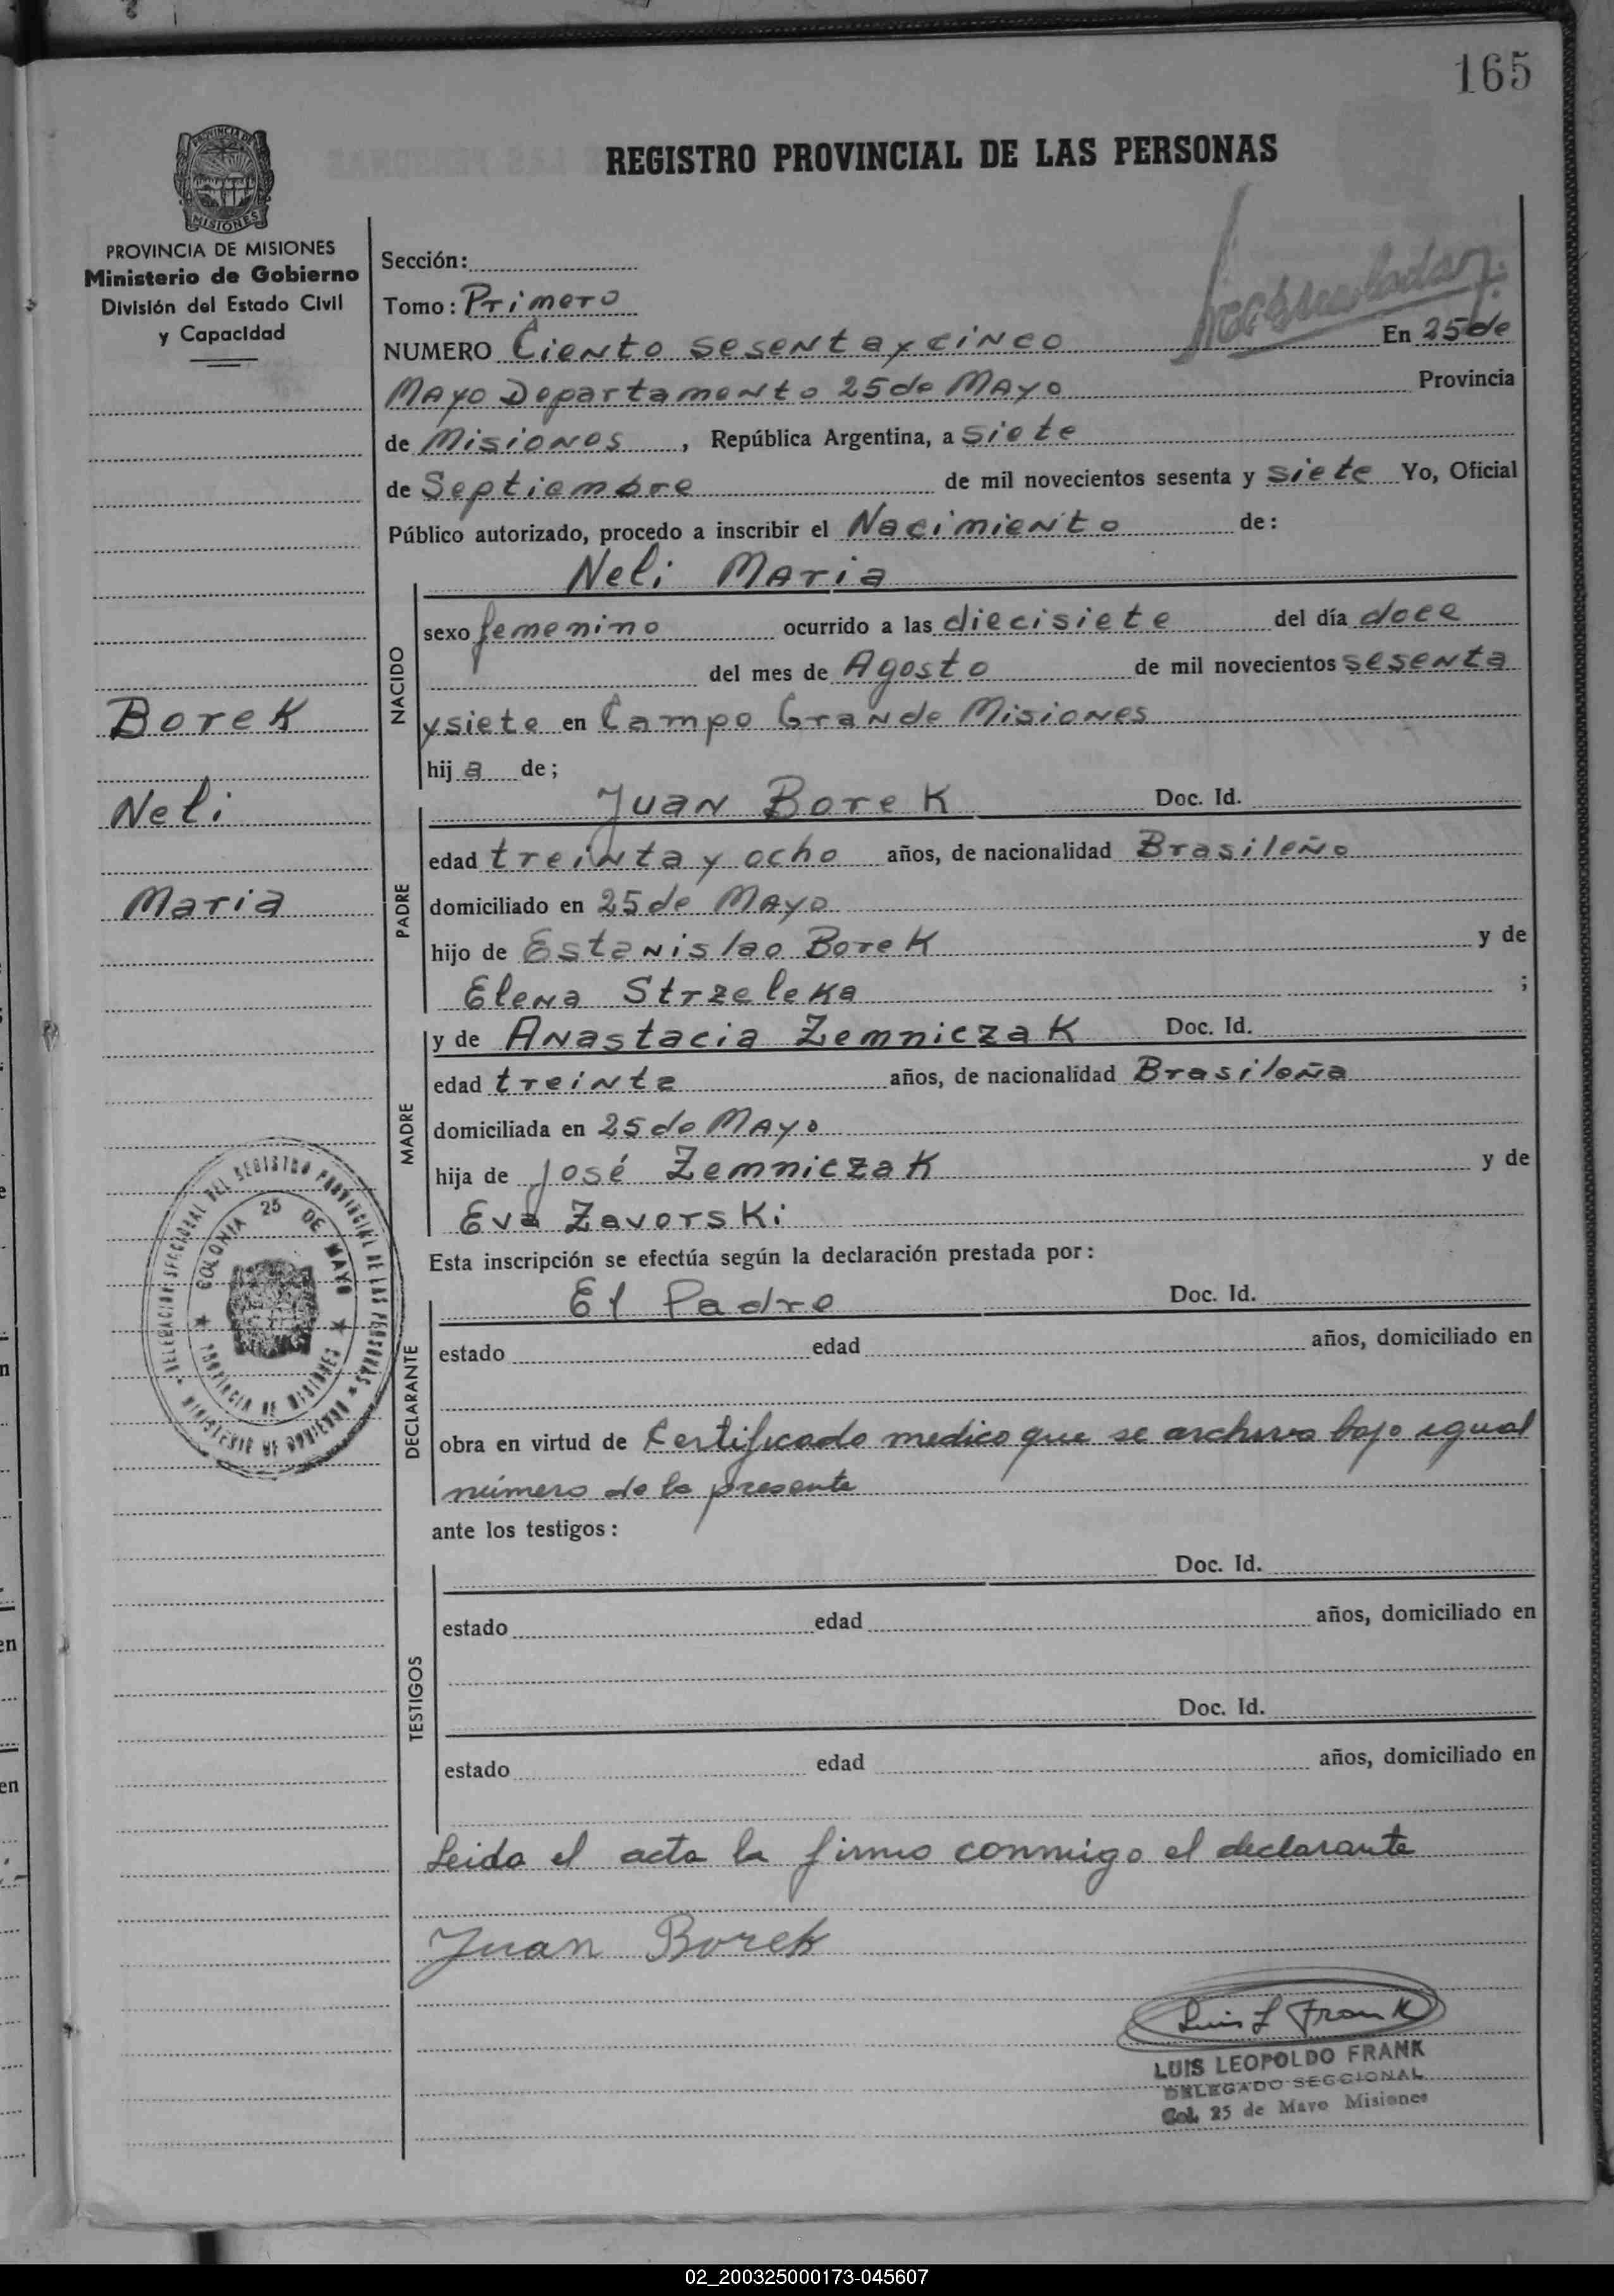 165
REGISTRO PROVINCIAL DE LAS PERSONAS
PROVINCIA DE MISIONES
MISIONES
PROVINCIA DE MISIONES
Ministerio de Gobierno
División del Estado Civil
y Capacidad
Borek
Neli
Maria
Sección:
Tomo: Primero
NUMERO Ciento sesenta y cinco En 25 de
Mayo Departamento 25 de Mayo Provincia
de Misiones, República Argentina, a siete
de Septiembre de mil novecientos sesenta y siete Yo, Oficial
Público autorizado, procedo a inscribir el Nacimiento de:
Neli Maria
NACIDO
sexo femenino ocurrido a las diecisiete del día doce
del mes de Agosto de mil novecientos sesenta
y siete en Campo Grande Misiones
hij a de;
Juan Borek Doc. Id.
PADRE
edad treinta y ocho años, de nacionalidad Brasileño
domiciliado en 25 de Mayo
hijo de Estanislao Borek y de
Elena Strzeleka ;
y de Anastacia Zemniczak Doc. Id.
MADRE
edad treinta años, de nacionalidad Brasileña
domiciliada en 25 de Mayo
hija de José Zemniczak y de
Eva Zavorski
Esta inscripción se efectúa según la declaración prestada por:
El Padre Doc. Id.
DECLARANTE
estado edad años, domiciliado en
obra en virtud de Certificado medico que se archiva bajo igual
número de la presente
ante los testigos:
Doc. Id.
TESTIGOS
estado edad años, domiciliado en
Doc. Id.
estado edad años, domiciliado en
Leida el acta la firma conmigo el declarante
Juan Borek
Luis L Frank
LUIS LEOPOLDO FRANK
DELEGADO SECCIONAL
Col. 25 de Mayo Misiones
DELEGACION SECCIONAL DEL REGISTRO PROVINCIAL DE LAS PERSONAS
MINISTERIO DE GOBIERNO
COLONIA 25 DE MAYO
PROVINCIA DE MISIONES
02_200325000173-045607